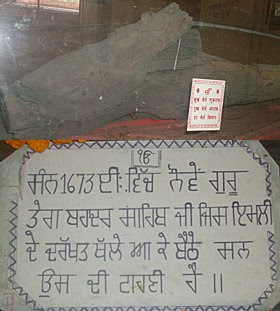 ੴ
ੴ
ਸੰਨ 1673 ਈ: ਵਿੱਚ ਨੌਵੇਂ ਗੁਰੂ
ਤੇਗ ਬਹਾਦਰ ਸਾਹਿਬ ਜੀ ਜਿਸ ਇਮਲੀ
ਦੇ ਦਰੱਖਤ ਥੱਲੇ ਆ ਕੇ ਬੈਠੇ ਸਨ
ਉਸ ਦੀ ਟਾਹਣੀ ਹੈ ॥